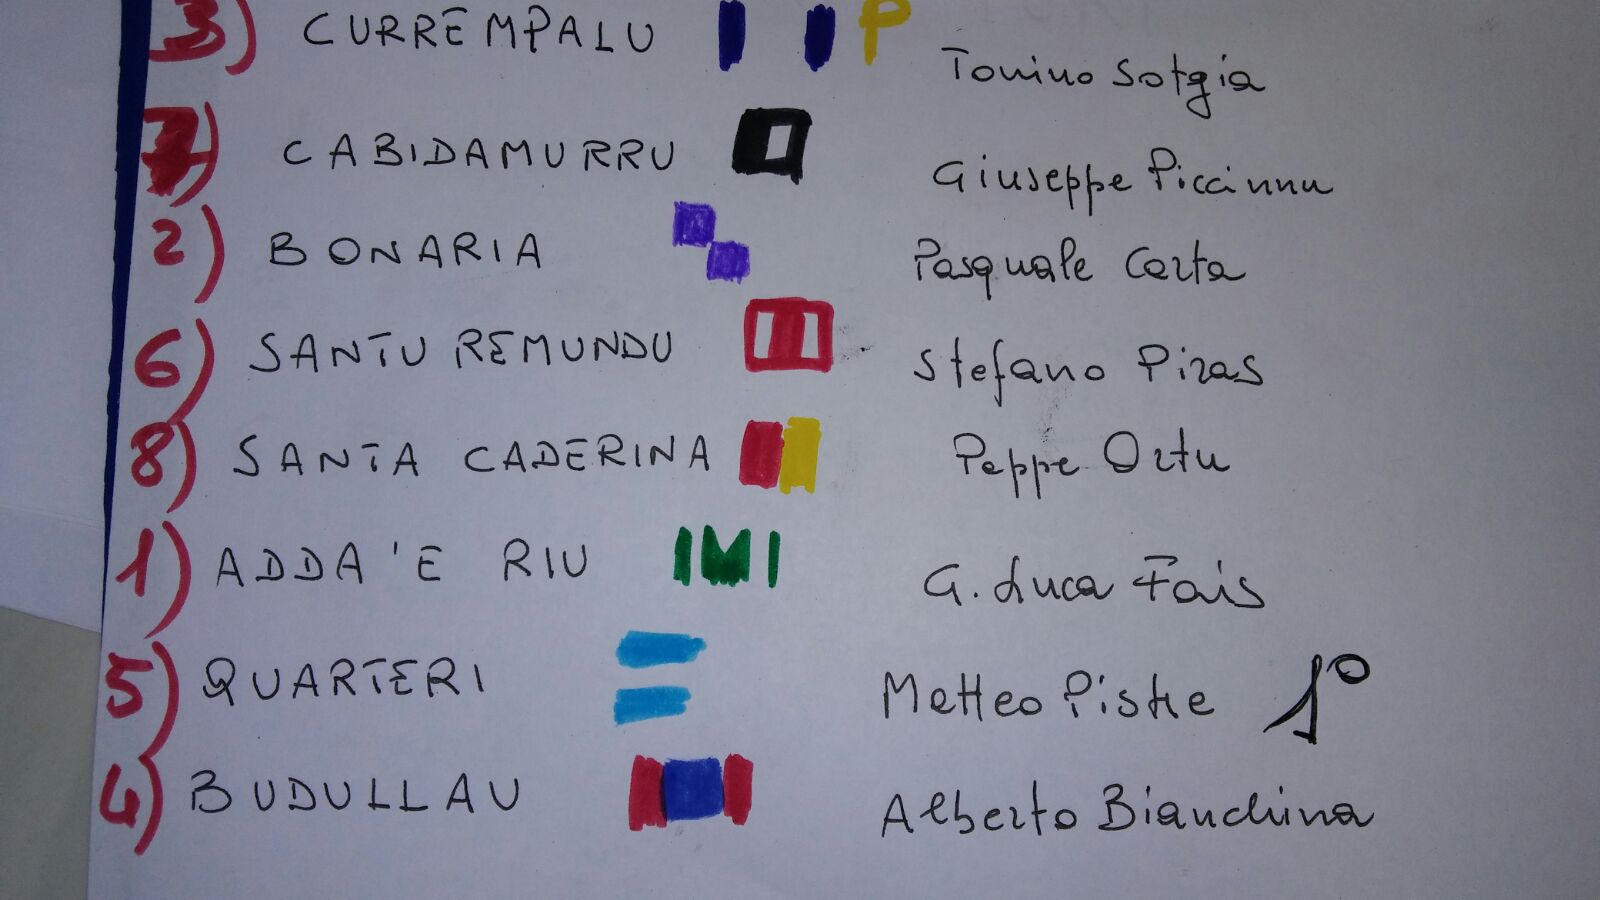 3) CURREMPALU P Tonino Sotgia
7) CABIDAMURRU Giuseppe Piccinnu
2) BONARIA Pasquale Carta
6) SANTU REMUNDU Stefano Piras
8) SANTA CADERINA Peppe Ortu
1) ADDA'E RIU G. Luca Fais
5) QUARTERI Matteo 1°
4) BUDULLAU Alberto Bianchina